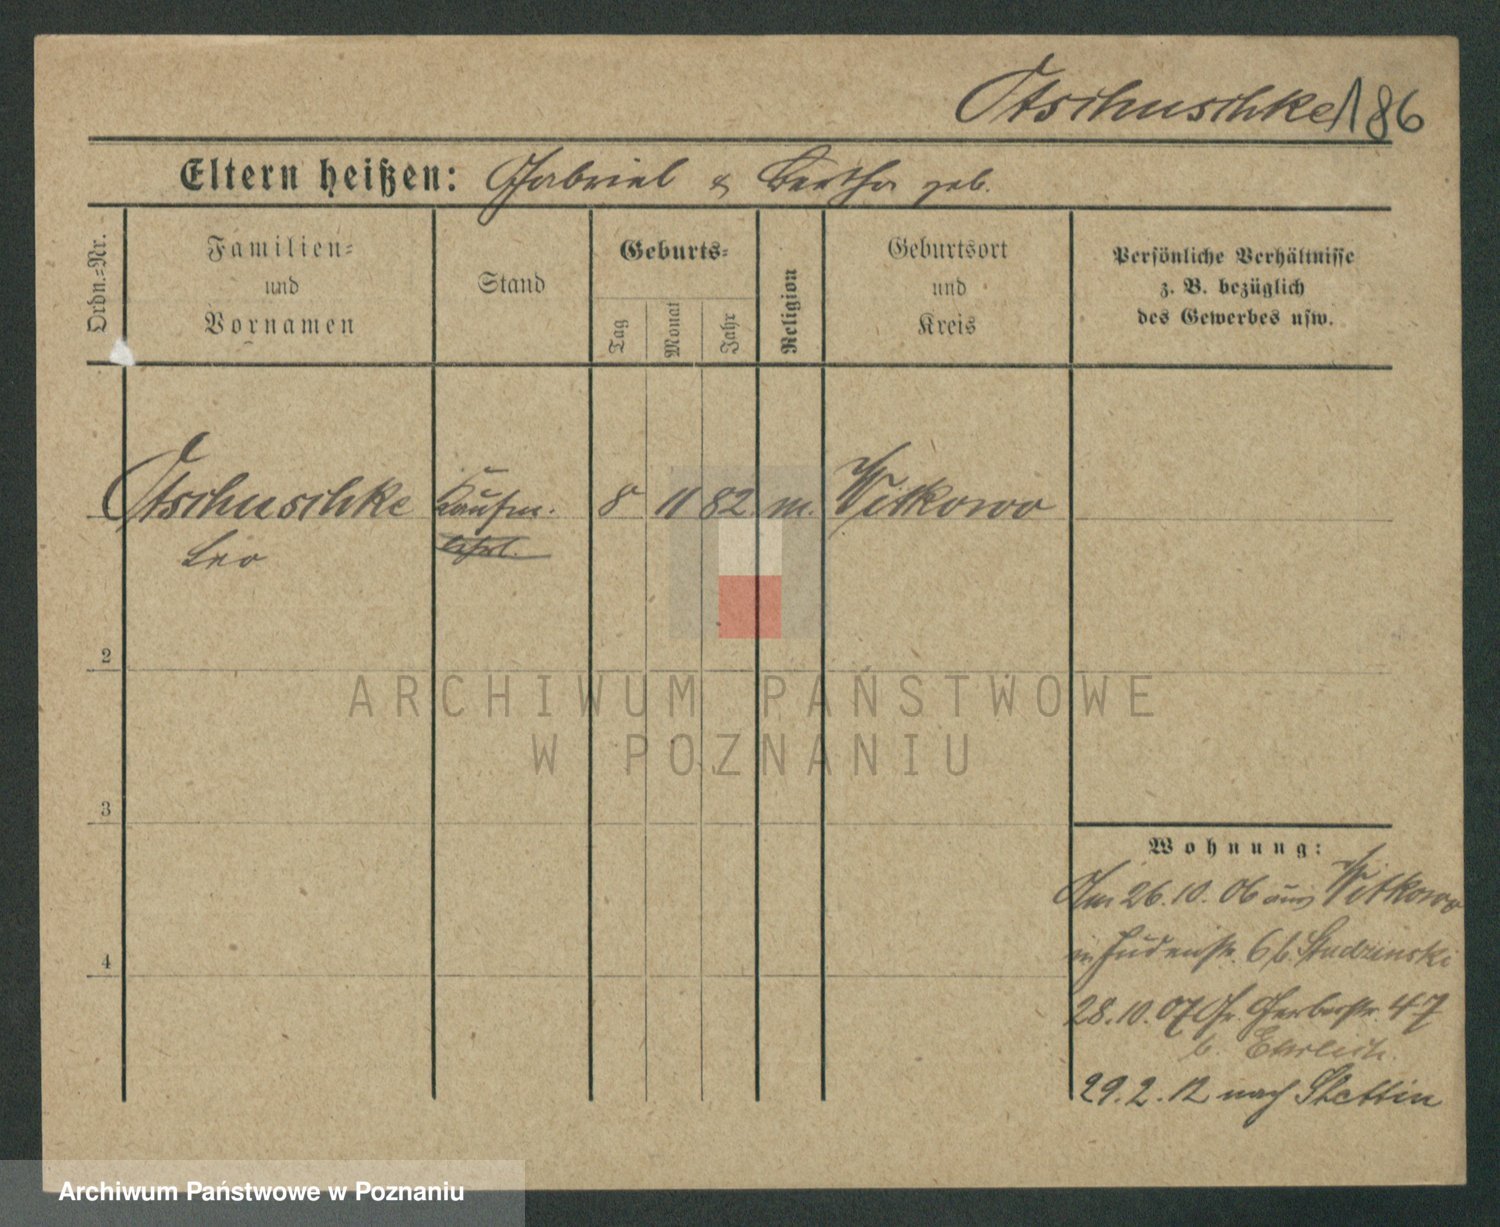 Otschuschke 186
Eltern heißen: Gabriel & Bertha geb.
Ordn.=Nr.
Familien=
und
Vornamen
Stand
Geburts=
Tag
Monat
Jahr
Religion
Geburtsort
und
Kreis
Persönliche Verhältnisse
z. B. bezüglich
des Gewerbes usw.
Otschuschke Kaufm. 8 11 82 m. Witkowo
Leo
2
3
4
Wohnung:
Am 26.10.06 aus Witkowo
in Judenstr. 6 b. Studzinski
28.10.07 Gr. Gerberstr. 47
b. Ehrlich.
29.2.12 nach Stettin
ARCHIWUM PAŃSTWOWE
W POZNANIU
Archiwum Państwowe w Poznaniu